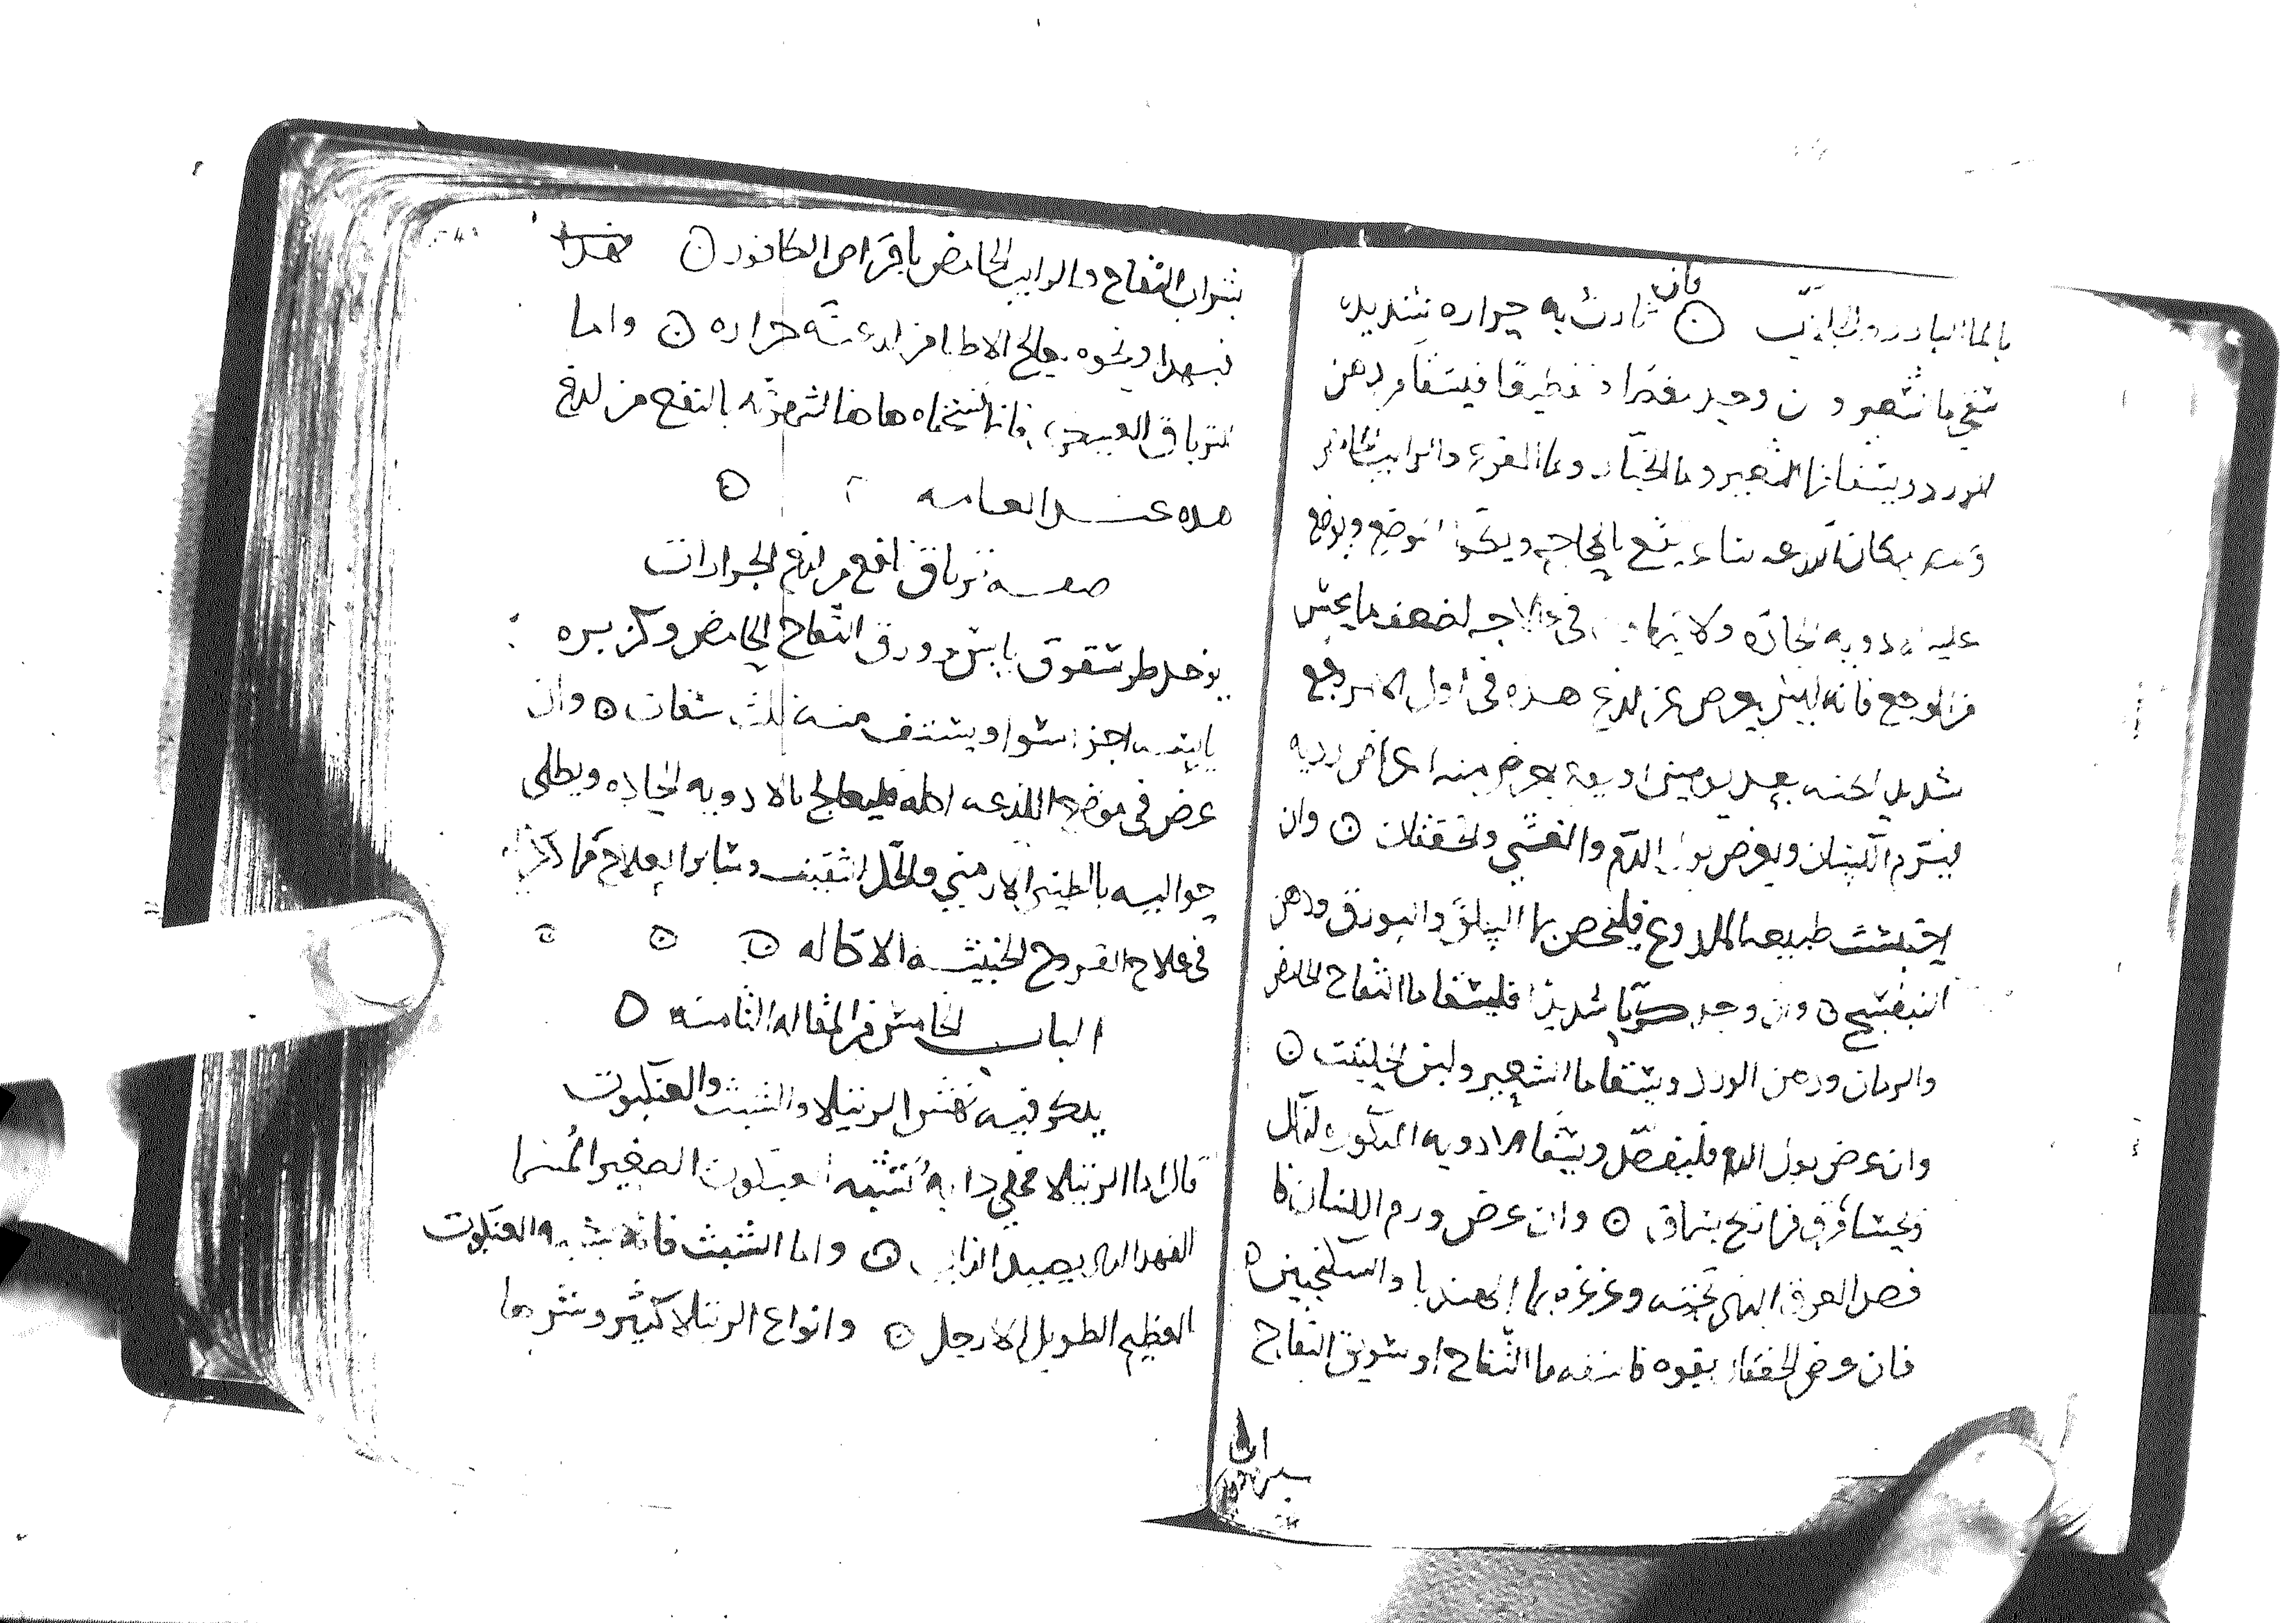 بالما البارد والجلاب ⊙ فان ثارت به حراره شديده
سقي ما الشعير و ان وجد مغصا وتقطيعا فيسقا من دهن
الورد ويسقا ما الشعير وما الخيار وما القرع والرايب الحامض
مكان اللدعه بالمحاجم ويكوا الموضع ويوضع
عليه الادويه الحاده ولا يتهاون في علاجه لضعف ما يحس
من الوجع فانه ليس يعرض عن لدغ هذه في اول الامر وجع
شديد لكنه بعد يومين او يعرض منه اعراض رديه
فيترم اللسان ويعرض بول الدم والغشي والخفقان ⊙ وان
احتبست طبيعه الملدوغ فليحقن بما السلق والبورق ودهن
البنفسج ⊙ وان وجد كربا شديدا فليسقا ما التفاح الحامض
والرمان ودهن الورد ويسقا ما الشعير ولبن الحليب ⊙
وان عرض بول الدم فليفصد ويسقا الادويه المذكوره لذلك
ويحسا مرق فراريج بسماق ⊙ وان عرض ورم اللسان
فصد العرق الذي تحته وغرغره بما الهندبا والسكنجبين ⊙
فان عرض الخفقان بقوه فاسقه ما التفاح او سويق التفاح
بشراب التفاح والرايب الحامض باقراص الكافور ⊙ هذا
فبهدا ونحوه يعالج الاطبا من لدعته حراره ⊙ واما
الترياق العسكري فانا نسخناه هاهنا لشهرته بالنفع من لدغ
هده عند العامه ⊙
صفه ترياق نافع من لدغ الجرارات
يوخد طرشقوق يابس وورق التفاح الحامض وكزبره
يابسه اجزا سوا ويستف منه ثلث سفات ⊙ وان
عرض في موضع اللدعه اكله فليعالج بالادويه الحاده ويطلى
حواليه بالطين الارمني والخل الثقيف وساير العلاج كما ذكرنا
في علاج القروح الخبيثه الاكاله ⊙ ⊙ ⊙
الباب الخامس من المقاله الثامنه ⊙
يدكر فيه نهش الرتيلا والشبث والعنكبوت
قال اما الرتيلا فهي دابه تشبه العنكبوت الصغير المسما
الفهد الدي يصيد الذباب ⊙ واما الشبث فانه يشبه العنكبوت
العظيم الطويل الارجل ⊙ وانواع الرتيلا كثير وشرها